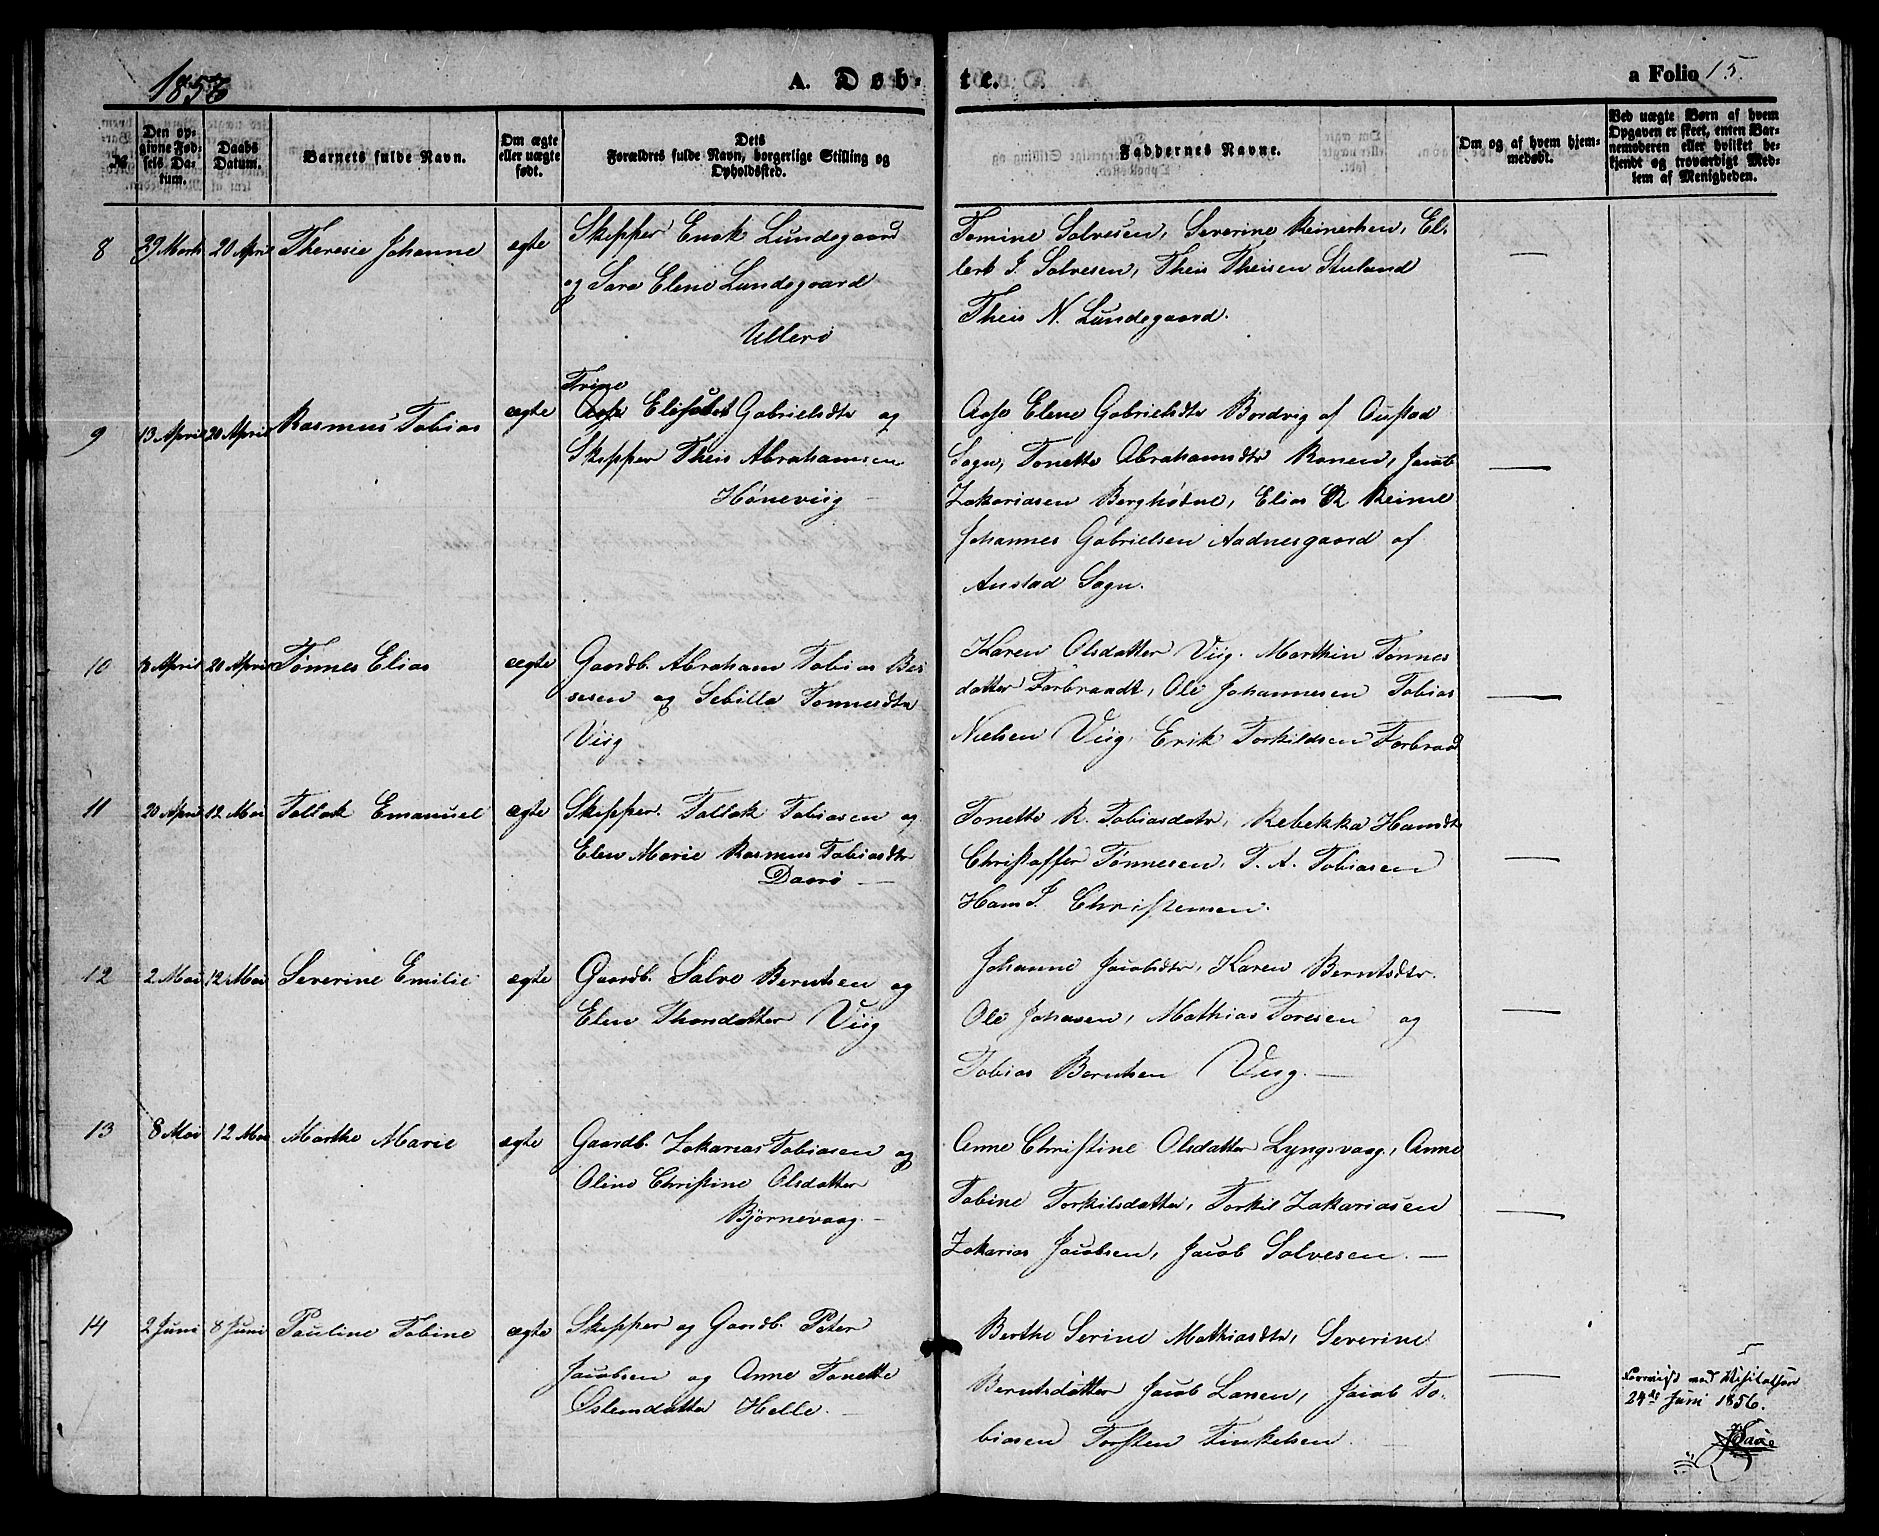 1856
A. Døb-
te.
a Folio 15.
№
Den op-
givne Fød-
sels Da-
tum.
Daabs
Datum.
Barnets fulde Navn.
Om ægte
eller uægte
født.
Dets
Forældres fulde Navn, borgerlige Stilling og
Opholdssted.
Faddernes Navne.
Om og af hvem hjem-
medøbt.
Ved uægte Børn af hvem
Opgaven er skeet, enten Bar-
nemoderen eller hvilket be-
kjendt og troværdigt Med-
lem af Menigheden.
8 29 Marts 20 April Theresie Johanne ægte
Skipper Enok Lundegaard
og Sara Elene Lundegaard
Ullerø
Tomine Salvesen, Severine Reinertsen, El-
lert J. Salvesen, Theis Theisen Stuland
Theis N. Lundegaard.
—
9 13 April 20 April Rasmus Tobias ægte
Trine
Aase Elisabet Gabrielsdtr og
Skipper Theis Abrahamsen
Høneviig —
Aase Elene Gabrielsdtr Bordvig af Austad
Sogn, Tonette Abrahamsdtr Ronen, Jacob
Zakariasen Berghødne, Elias R Reime
Johannes Gabrielsen Aadnesgaard af
Austad Sogn.
—
10 13 April 20 April Tønnes Elias ægte
Gaardb. Abraham Tobias Ber-
sesen og Sebille Tønnesdtr
Viig
Karen Olsdatter Viig. Marthin Tønnes
datter Farbraadt, Ole Johannesen Tobias
Nielsen Viig, Erik Torkildsen Farbraad
—
11 20 April 12 Mai Tallak Emanuel ægte
Skipper. Tallak Tobiasen og
Elen Marie Rasmus Tobiasdtr
Daarø —
Tonette R. Tobiasdatr, Rebekka Hansdtr
Christoffer Tønnesen, T. A. Tobiasen
Hans J. Christensen.
—
12 2 Mai 12 Mai Severine Emilie ægte
Gaardb. Salve Berntsen og
Elen Thorsdatter Viig
Johanne Jacobsdtr, Karen Berntsdtr.
Ole Johnsen, Mathias Toresen og
Tobias Berntsen Viig. —
—
13 8 Mai 12 Mai Marthe Marie ægte
Gaardb. Zakarias Tobiasen og
Oline Christine Olsdatter
Bjørnevaag. —
Anne Christine Olsdatter Lyngsvaag, Anne
Tobine Torkilsdatter, Torkil Zakariasen
Zakarias Jacobsen, Jacob Salvesen. —
—
14 2 Juni 8 Juni Pauline Tobine ægte
Skipper og Gaardb. Peter
Jacobsen og Anne Tonette
Osteensdatter Helle. —
Berthe Serine Mathiasdtr, Severine
Berntsdatter Jacob Larsen, Jacob To-
biasen Torsten Tinkelsen.
—
Forevist ved Visitatsen
24de Juni 1856.